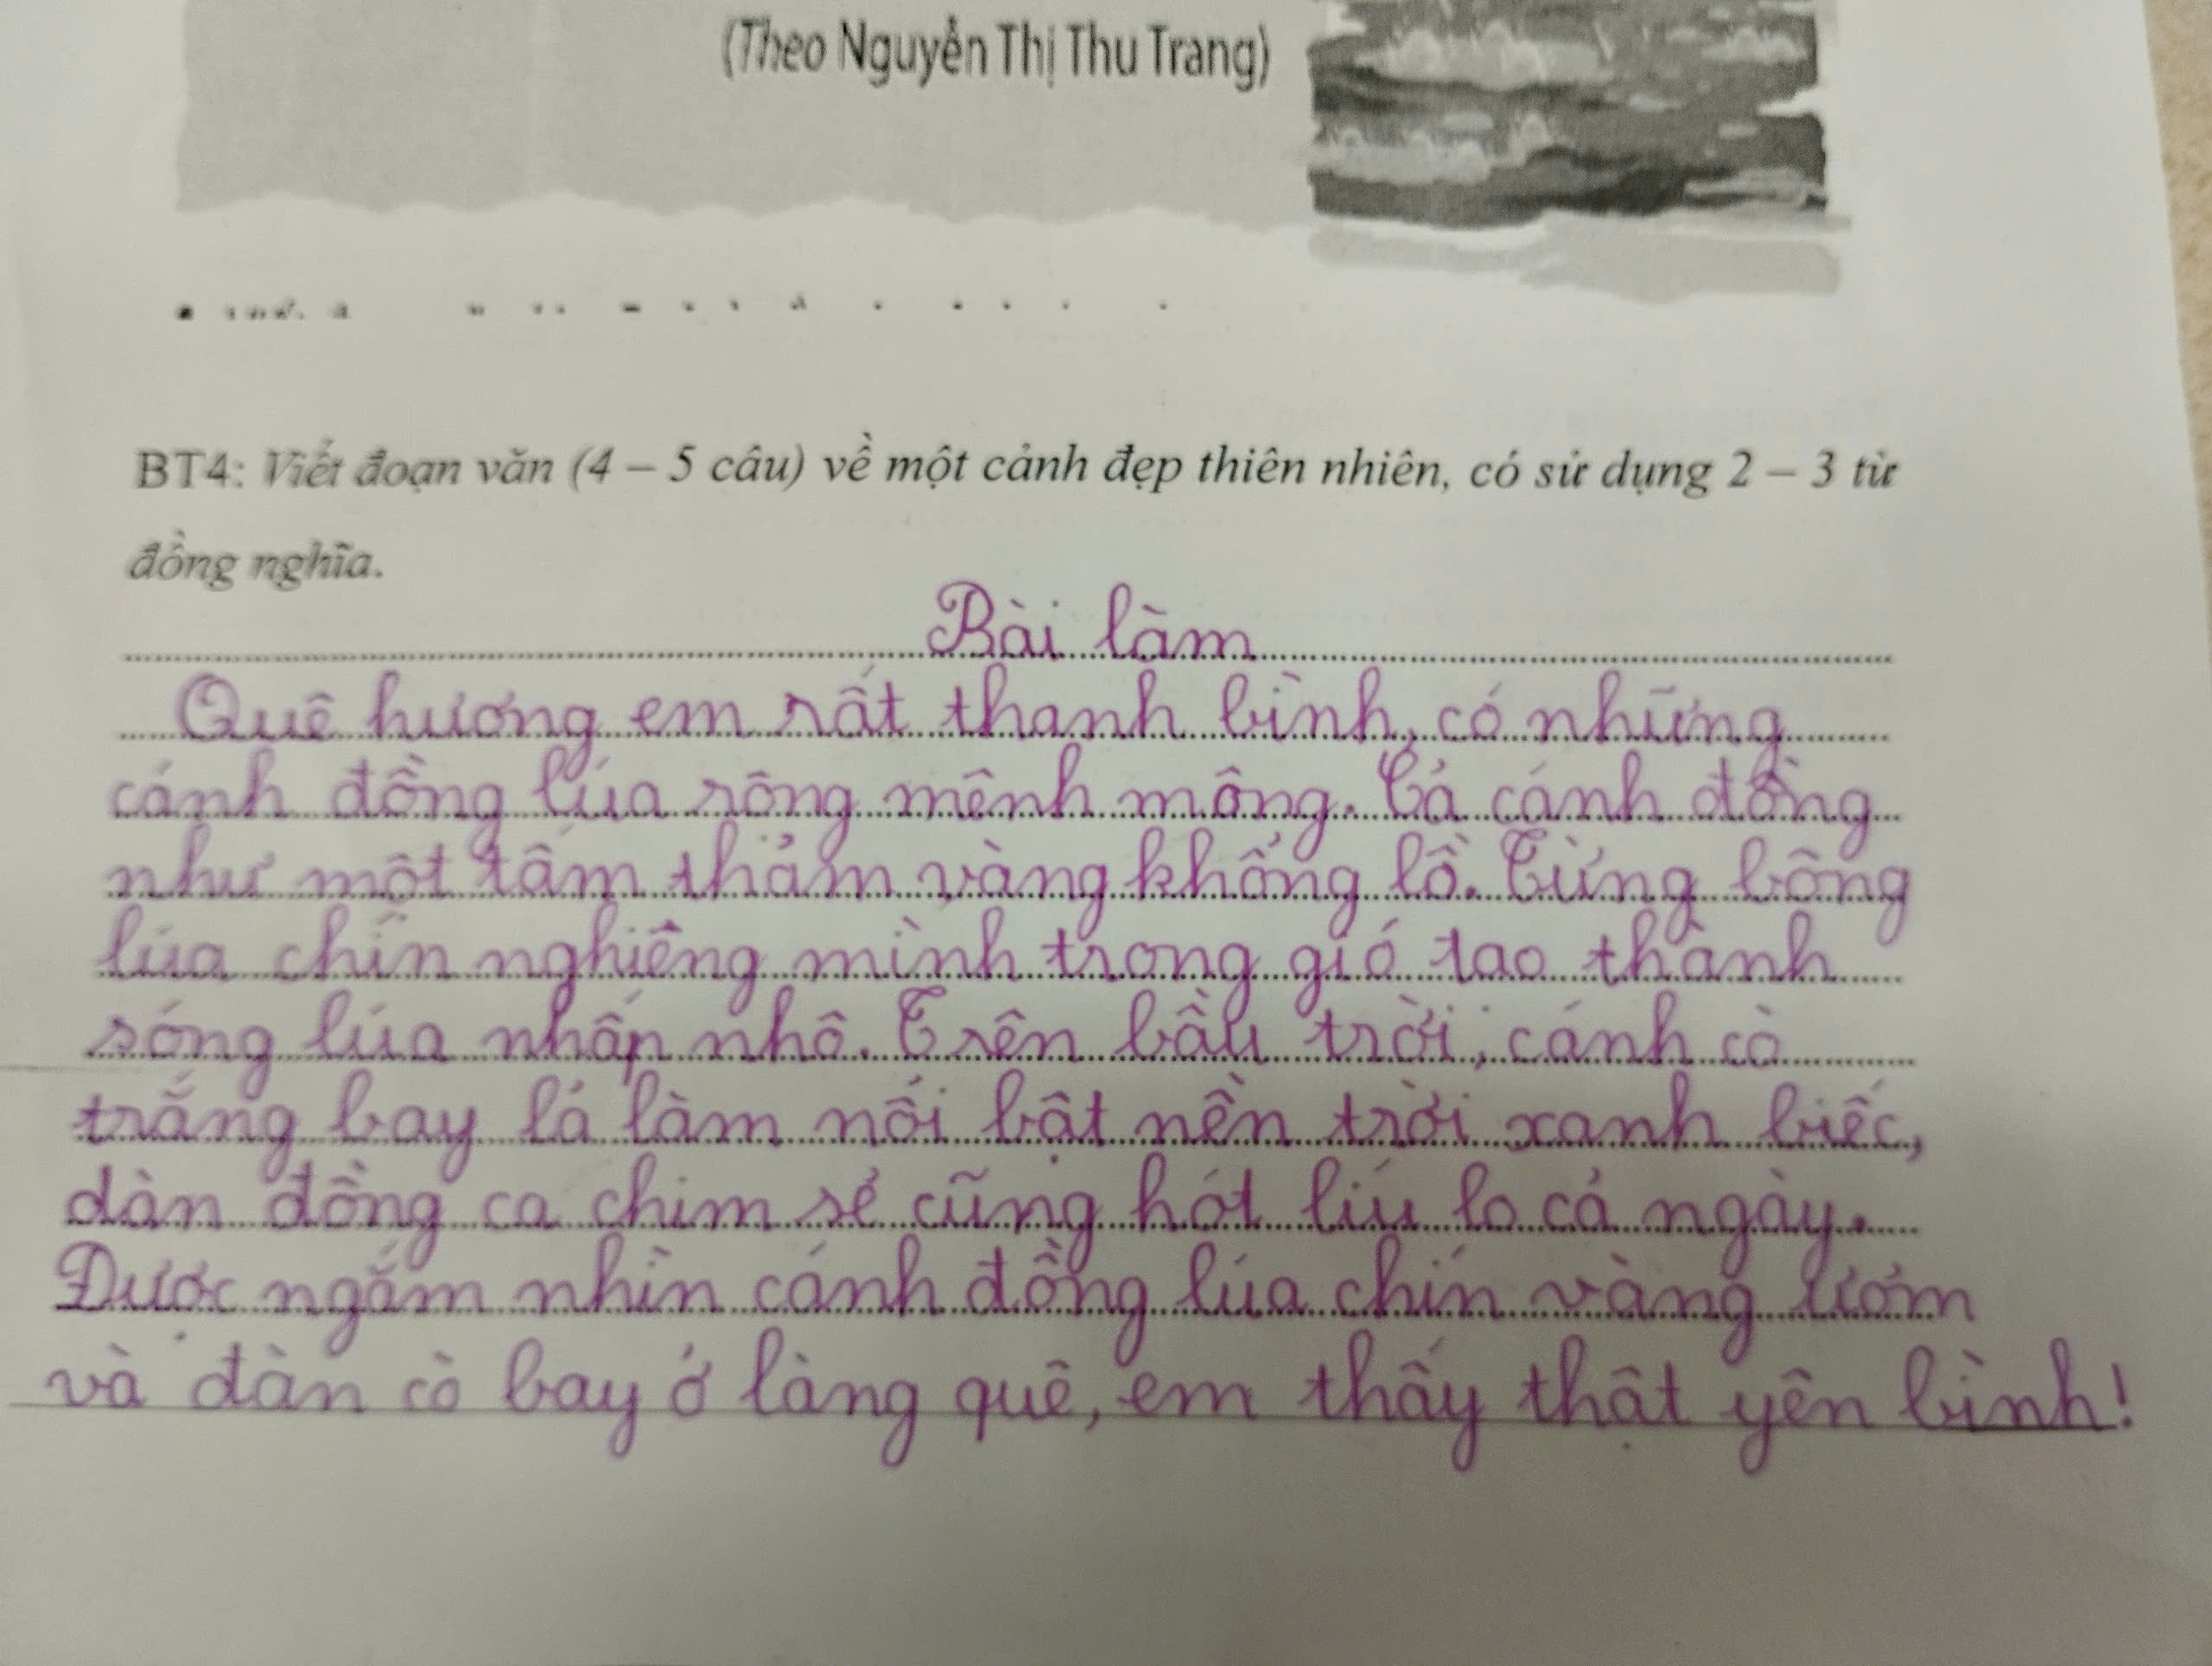 (Theo Nguyễn Thị Thu Trang)
BT4: Viết đoạn văn (4 – 5 câu) về một cảnh đẹp thiên nhiên, có sử dụng 2 – 3 từ
đồng nghĩa.
Bài làm
Quê hương em rất thanh bình, có những
cánh đồng lúa rông mênh mông. Cả cánh đồng
như một tấm thảm vàng khổng lồ. Từng bông
lúa chín nghiêng mình trong gió tao thành
sóng lúa nhấp nhô. Trên bầu trời, cánh cò
trắng bay lả làm nổi bật nền trời xanh biếc,
dàn đồng ca chim sẻ cũng hót líu lo cả ngày.
Được ngắm nhìn cánh đồng lúa chín vàng ươm
và đàn cò bay ở làng quê, em thấy thật yên bình!